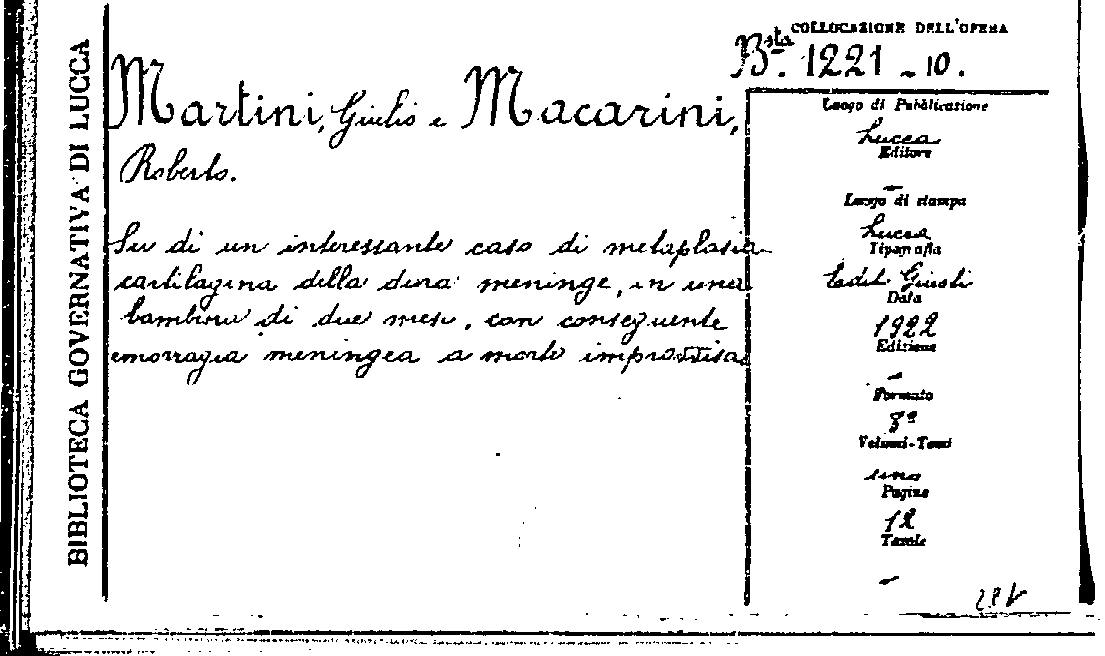 BIBLIOTECA GOVERNATIVA DI LUCCA
COLLOCAZIONE DELL'OPERA
Bsta. 1221 - 10.
Martini, Giulio e Macarini,
Roberto.
Su di un interessante caso di metaplasia
cartilagina della dura meningea, in una
bambina di due mesi, con conseguente
emorragia meningea a morte improvvisa
Luogo di Pubblicazione
Lucca
Editore
—
Luogo di stampa
Lucca
Tipografia
Giusti
Data
1922
Edizione
—
Formato
8º
Volumi-Tomi
uno
Pagine
12
Tavole
—